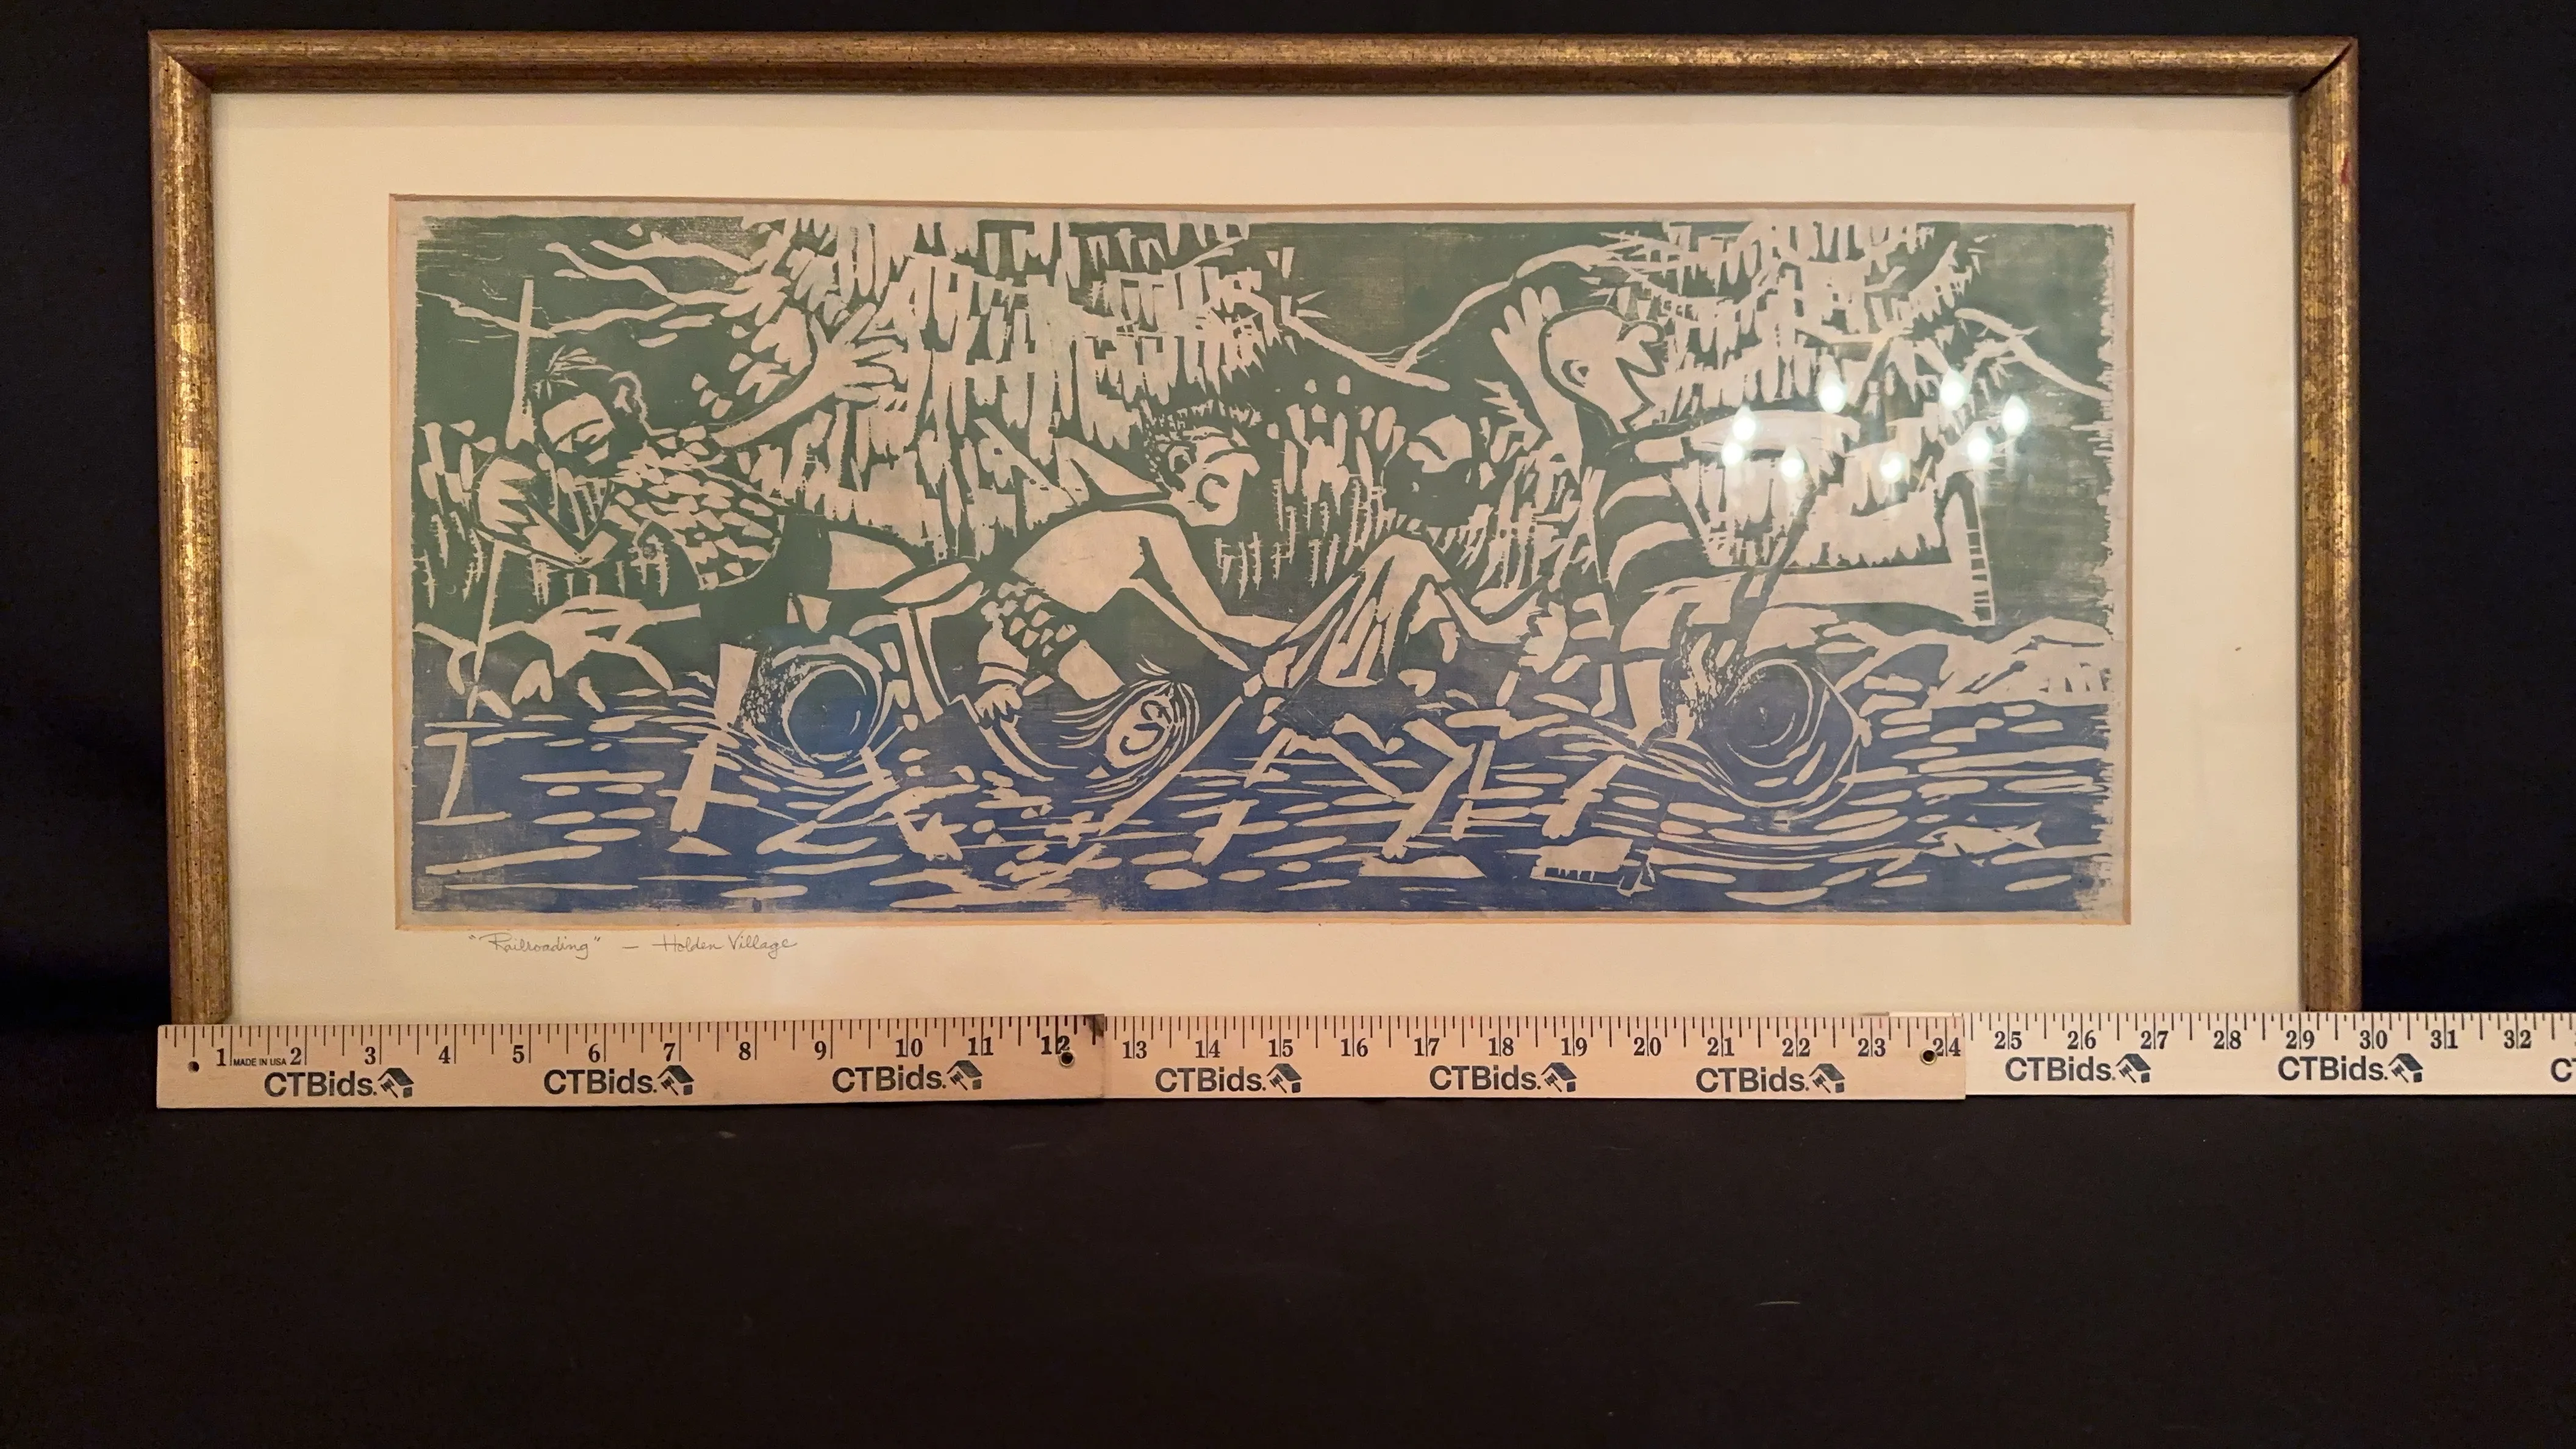 "Railroading" — Holden Village
1 MADE IN USA 2 3 4 5 6 7 8 9 10 11 12 13 14 15 16 17 18 19 20 21 22 23 24 25 26 27 28 29 30 31 32
CTBids. CTBids. CTBids. CTBids. CTBids. CTBids. CTBids. CTBids. CT